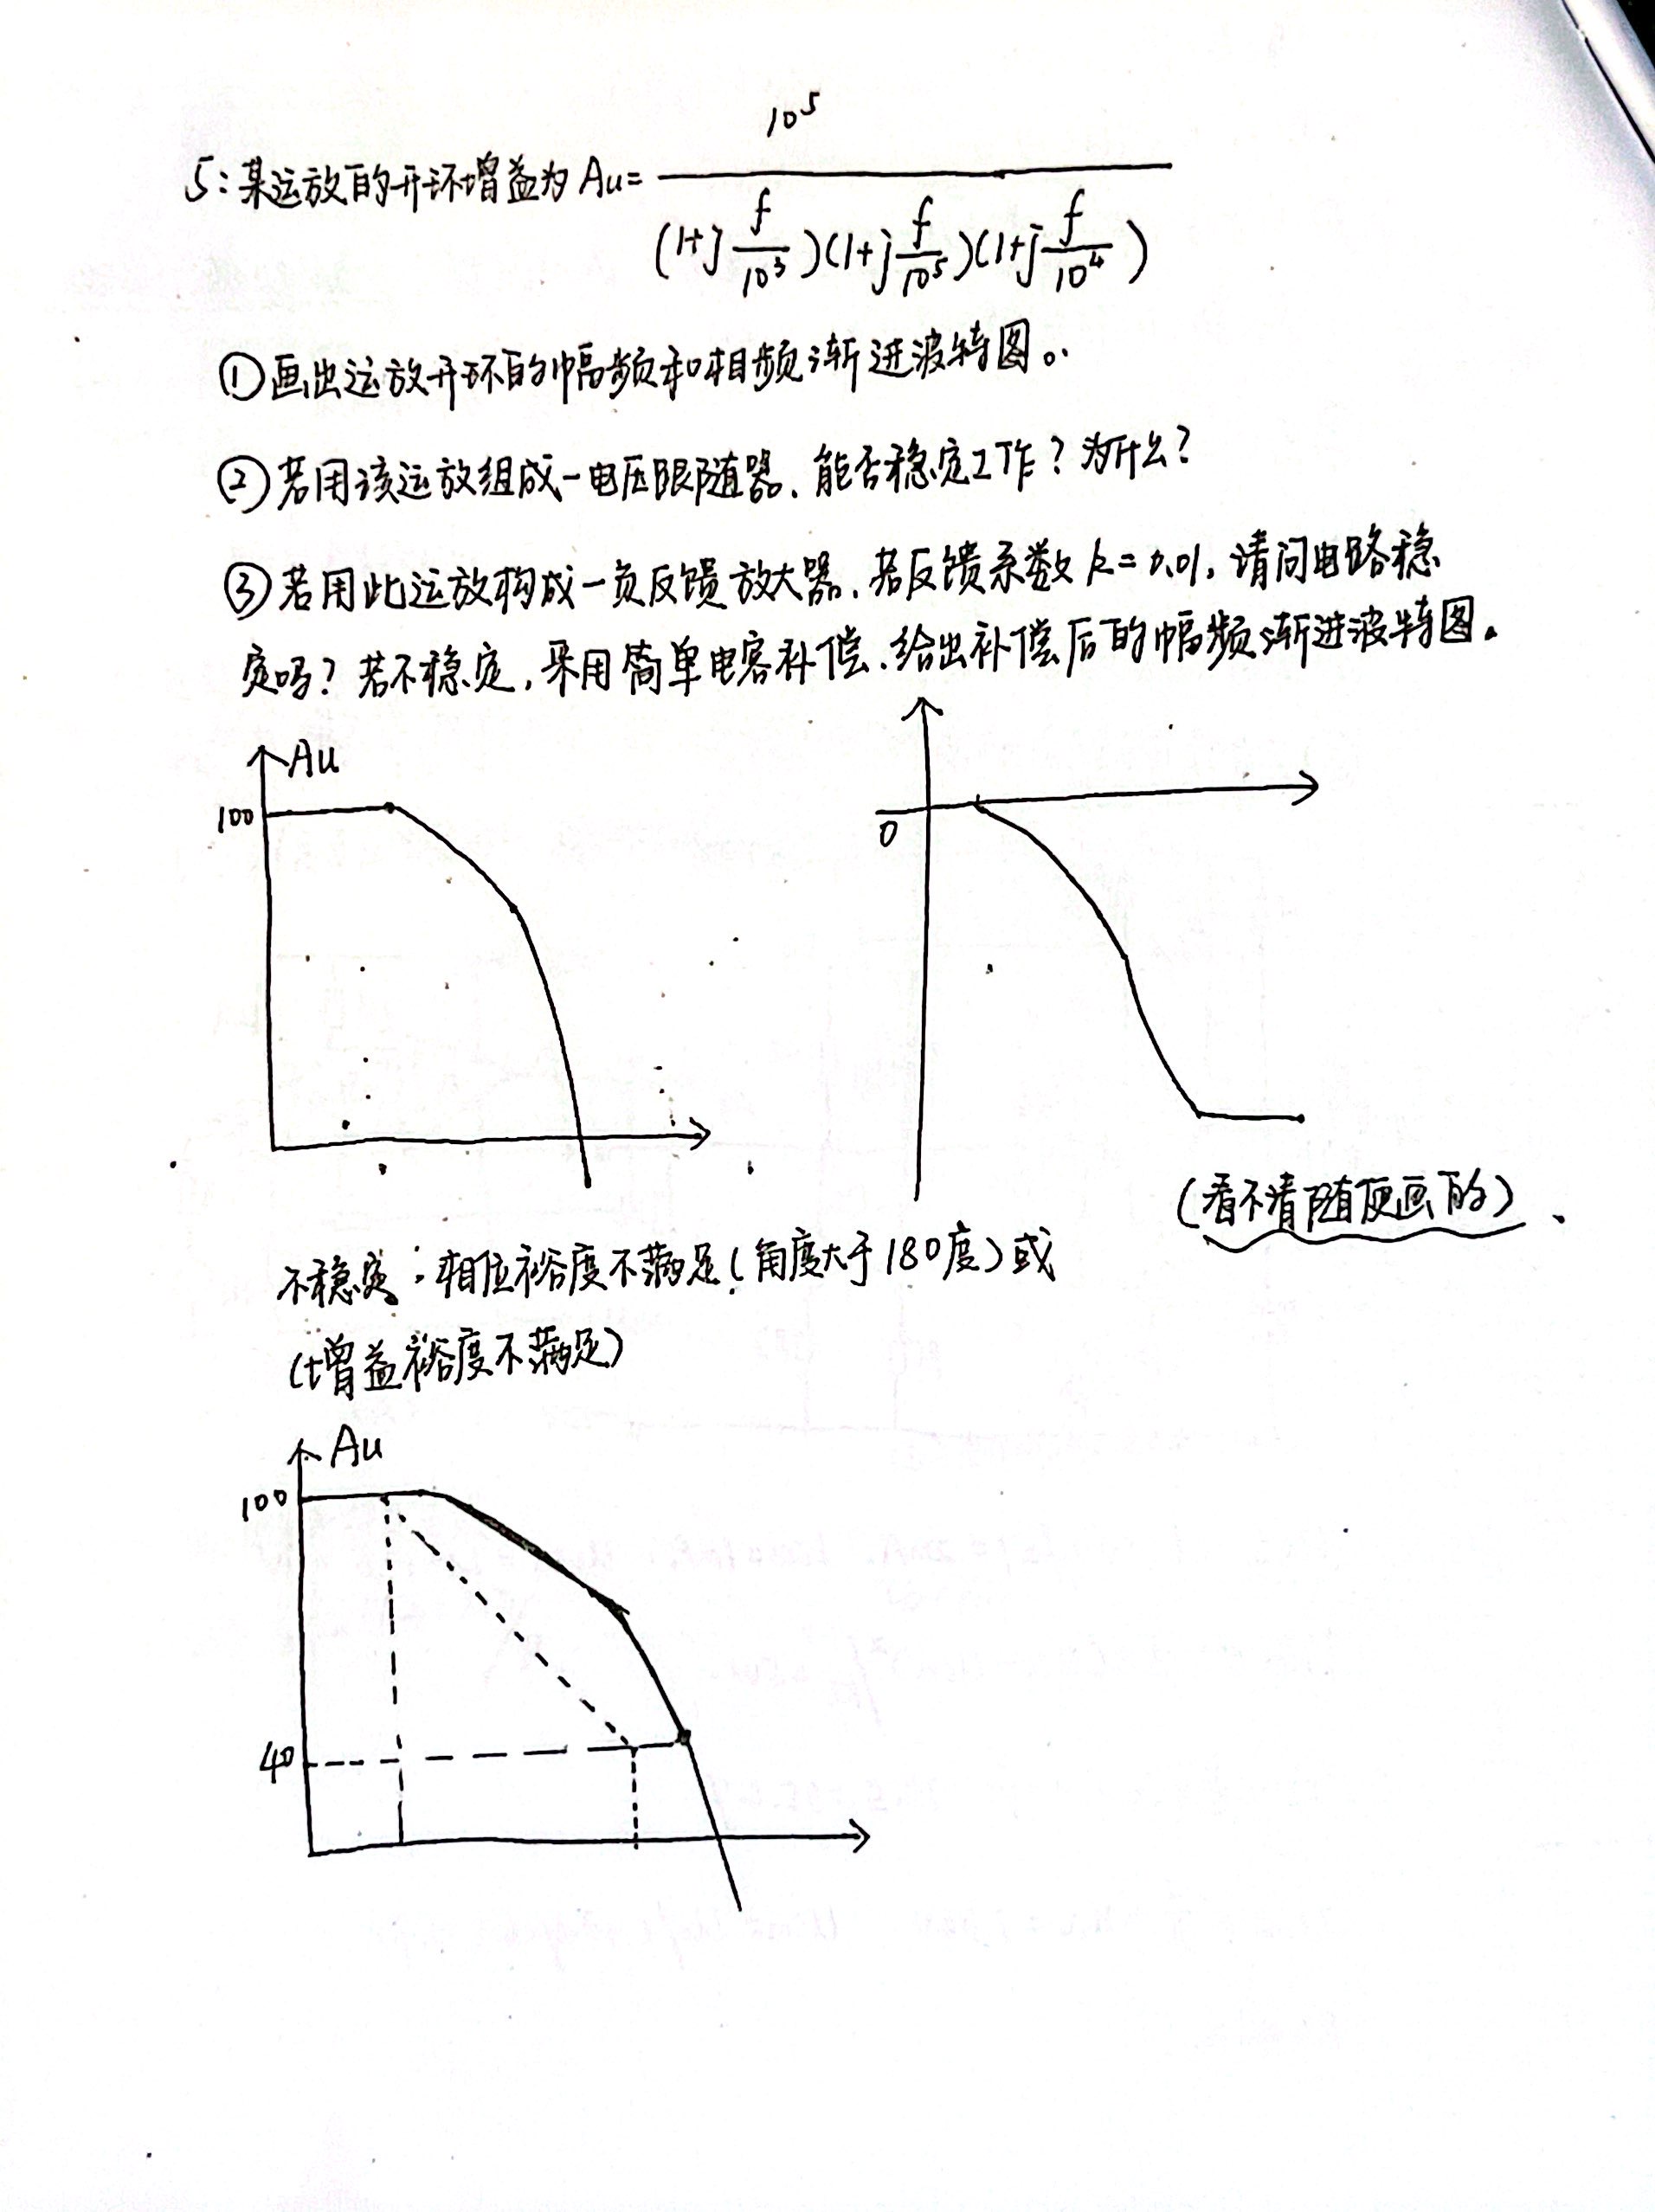 5:某运放的开环增益为 Au= 10⁵ / (1+j f/10³)(1+j f/10⁵)(1+j f/10⁴)
①画出运放开环的幅频和相频渐进波特图。
②若用该运放组成一电压跟随器、能否稳定工作？为什么？
③若用此运放构成一负反馈放大器、若反馈系数 k=0.01, 请问电路稳
定吗？若不稳定, 采用简单电容补偿、给出补偿后的幅频渐进波特图。
Au
100
0
(看不清随便画的)、
不稳定：相位裕度不满足(角度大于180度)或
(增益裕度不满足)
Au
100
40